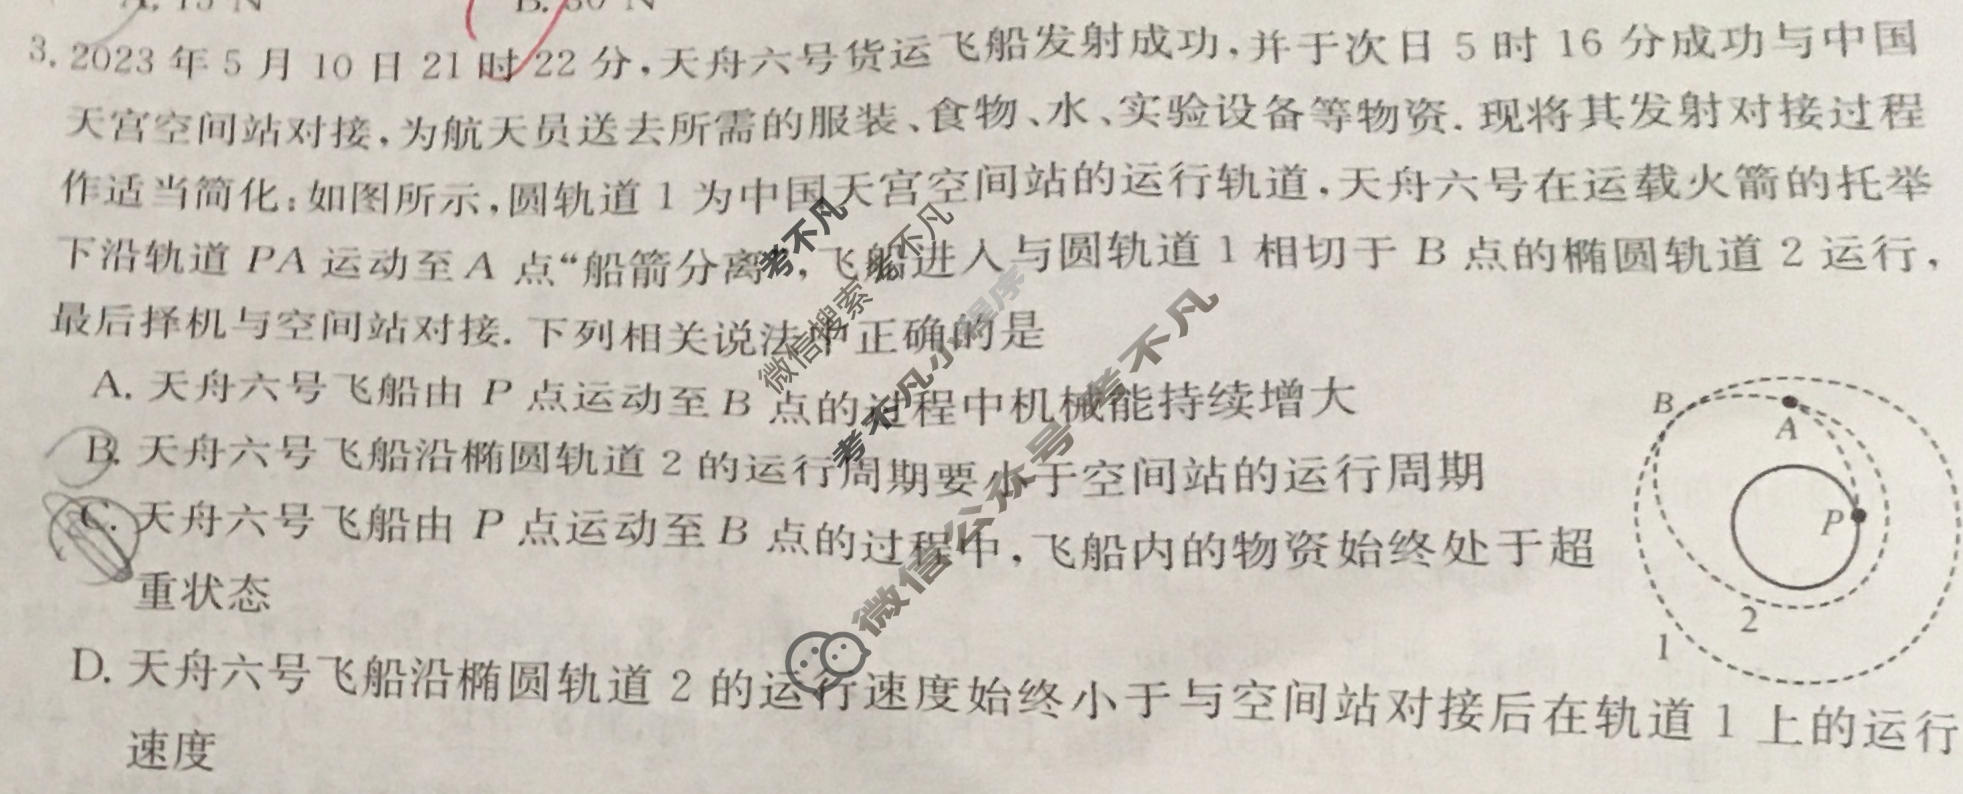 A. 15 N B. 30 N
3. 2023 年 5 月 10 日 21 时 22 分,天舟六号货运飞船发射成功,并于次日 5 时 16 分成功与中国
天宫空间站对接,为航天员送去所需的服装、食物、水、实验设备等物资. 现将其发射对接过程
作适当简化:如图所示,圆轨道 1 为中国天宫空间站的运行轨道,天舟六号在运载火箭的托举
下沿轨道 PA 运动至 A 点“船箭分离”,飞船进入与圆轨道 1 相切于 B 点的椭圆轨道 2 运行,
最后择机与空间站对接. 下列相关说法中正确的是
A. 天舟六号飞船由 P 点运动至 B 点的过程中机械能持续增大
B. 天舟六号飞船沿椭圆轨道 2 的运行周期要小于空间站的运行周期
C. 天舟六号飞船由 P 点运动至 B 点的过程中,飞船内的物资始终处于超
重状态
D. 天舟六号飞船沿椭圆轨道 2 的运行速度始终小于与空间站对接后在轨道 1 上的运行
速度
B
A
P
2
1
考不凡
微信搜索 考不凡
考不凡小程序
微信公众号 考不凡